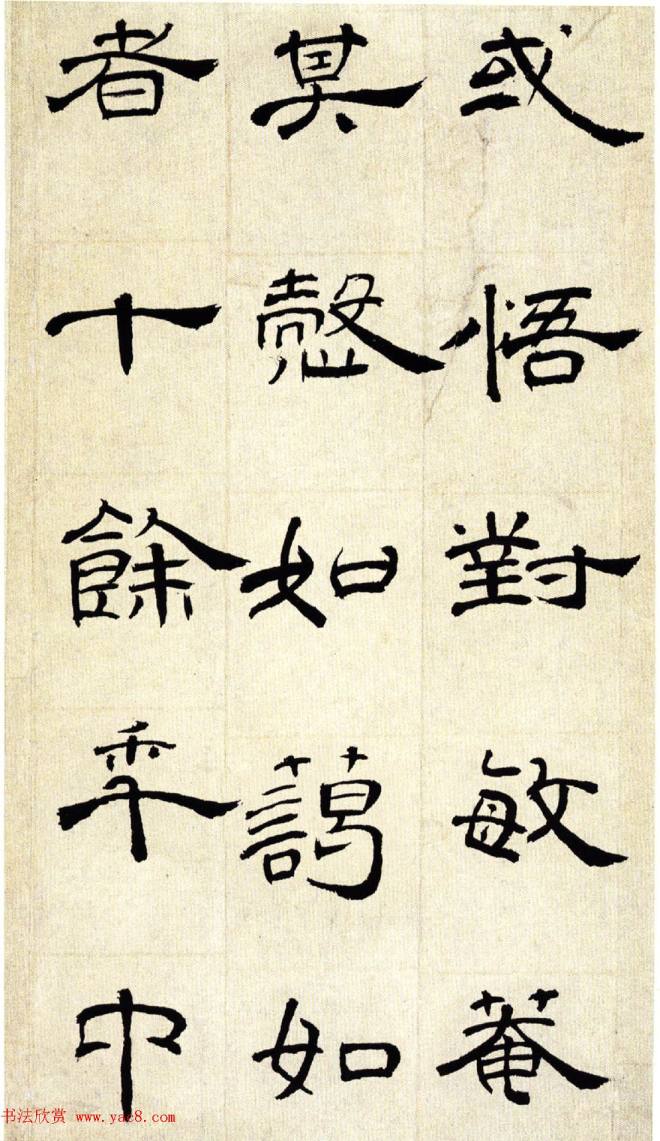 或悟對敏菴
其愨如藹如
者十餘秊中
书法欣赏 www.yac8.com